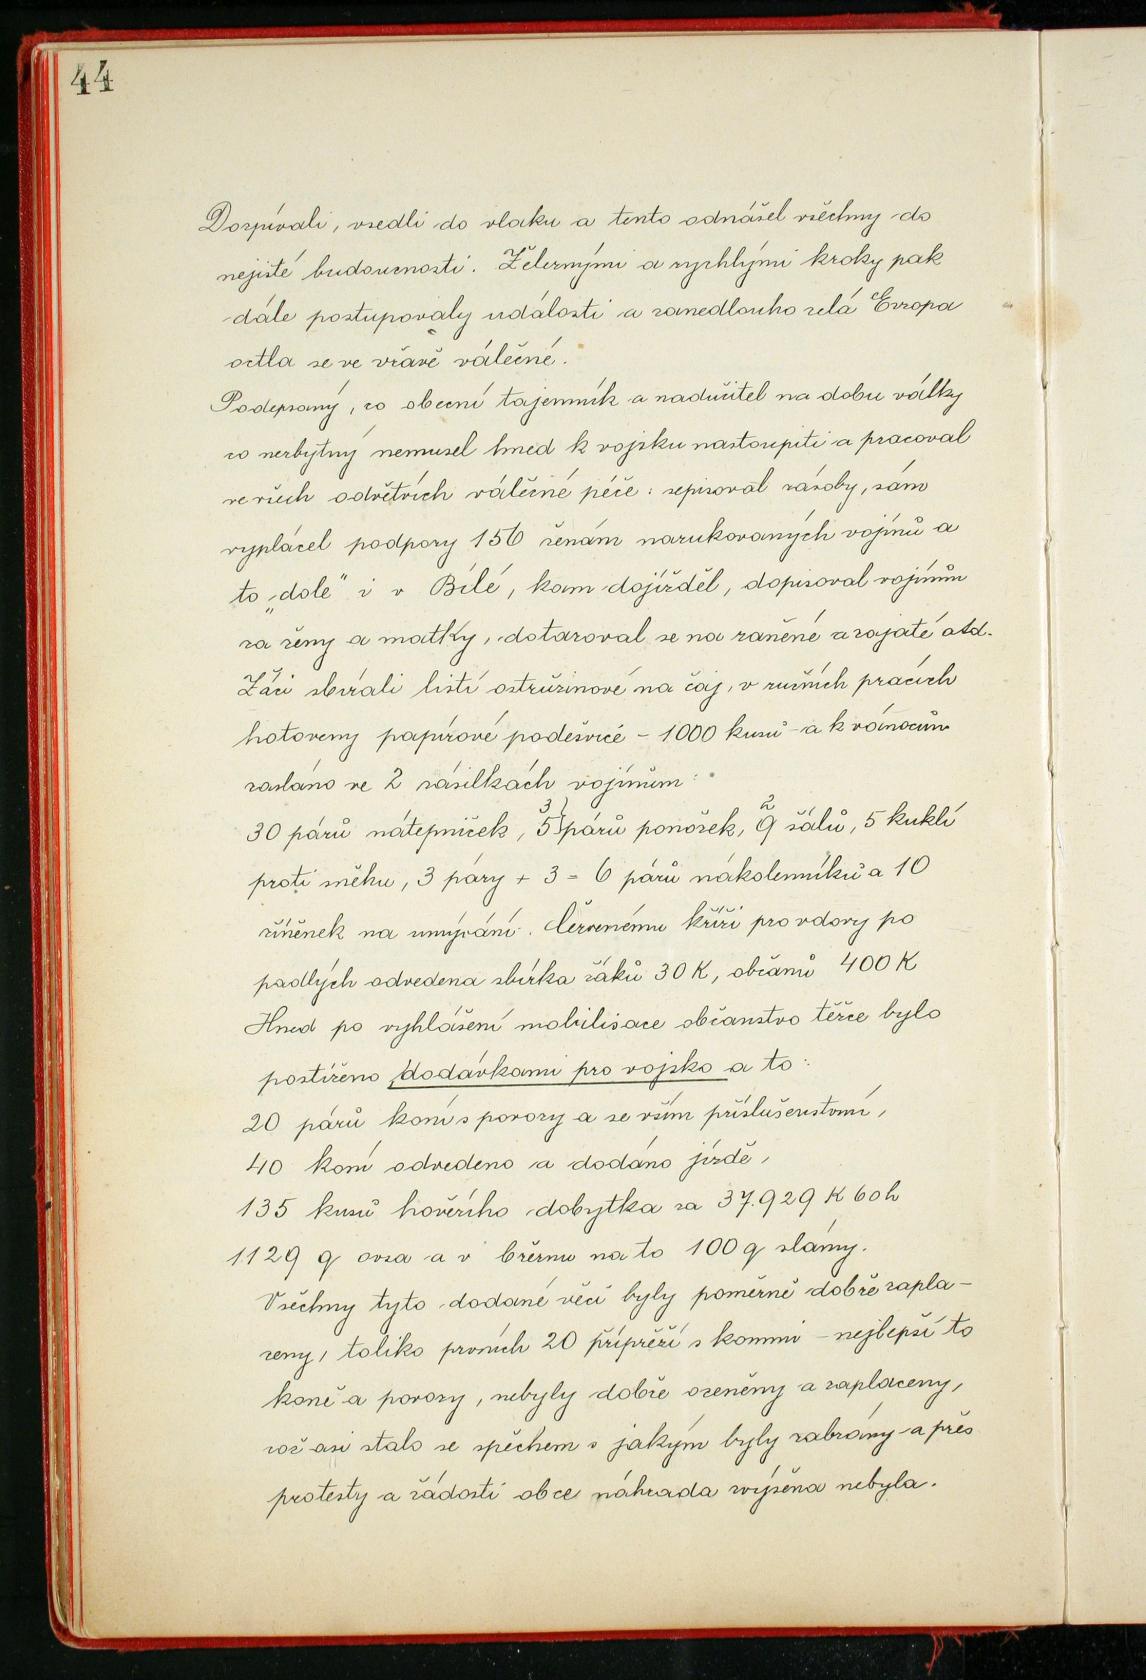 44
Dozpívali, vsedli do vlaku a tento odnášel všechny do
nejisté budoucnosti. Železnými a rychlými kroky pak
dále postupovaly události a zanedlouho celá Evropa
octla se ve vřavě válečné.
Podepsaný, co obecní tajemník a nadučitel na dobu války
co nezbytný nemusel hned k vojsku nastoupiti a pracoval
ve všech odvětvích válečné péče: sepisoval zásoby, sám
vyplácel podpory 156 ženám narukovaných vojínů a
to „dole" i v Bílé, kam dojížděl, dopisoval vojínům
za ženy a matky, dotazoval se na raněné a zajaté atd.
Žáci sbírali listí ostružinové na čaj, v ručních pracích
hotoveny papírové podešvice – 1000 kusů – a k vánocům
zasláno ve 2 zásilkách vojínům:
3 2
30 párů nátepniček, 5 párů ponožek, 9 šálů, 5 kuklí
proti sněhu, 3 páry + 3 = 6 párů nákolenníků a 10
žíněnek na umývání. Červenému kříži pro vdovy po
padlých odvedena sbírka žáků 30 K, občanů 400 K
Hned po vyhlášení mobilisace občanstvo těžce bylo
postiženo dodávkami pro vojsko a to:
20 párů koní s povozy a se vším příslušenstvím,
40 koní odvedeno a dodáno jízdě,
135 kusů hovězího dobytka za 37.929 K 60 h
1129 q ovsa a v březnu na to 100 q slámy.
Všechny tyto dodané věci byly poměrně dobře zapla-
ceny, toliko prvních 20 přípřeží s koňmi – nejlepší to
koně a povozy, nebyly dobře oceněny a zaplaceny,
což asi stalo se spěchem s jakým byly zabrány a přes
protesty a žádosti obce náhrada zvýšena nebyla.